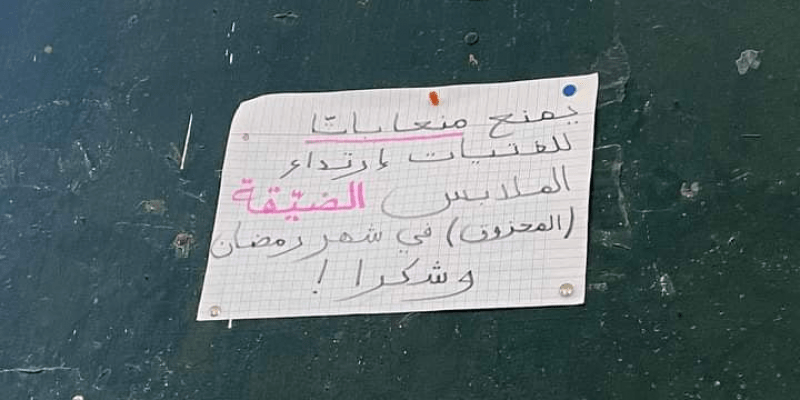 يمنع منعا باتا
للفتيات إرتداء
الملابس الضيّقة
(المحزوق) في شهر رمضان
وشكرا !